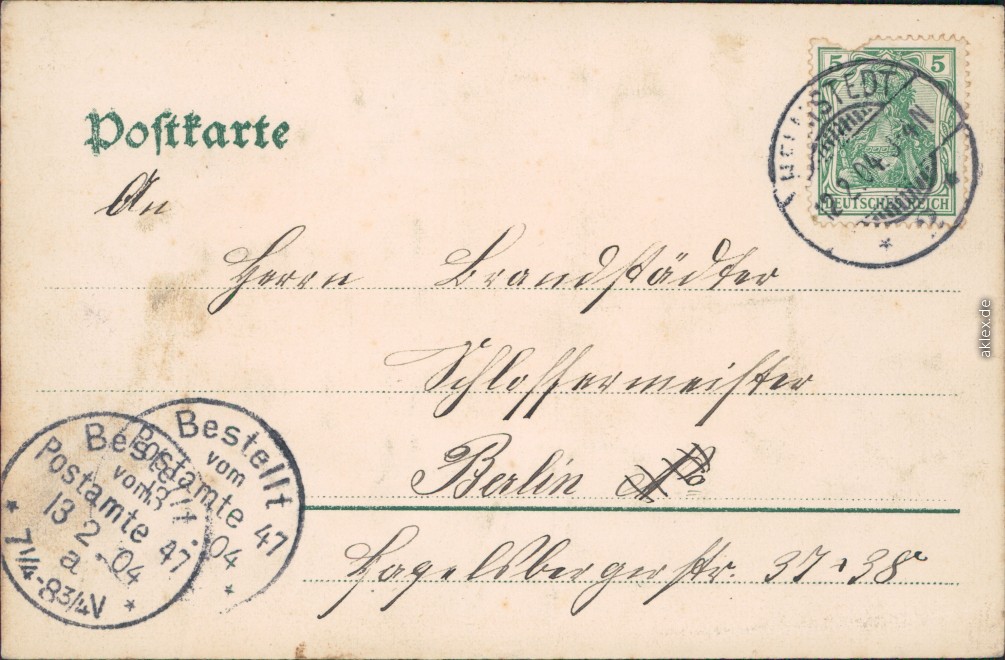 Postkarte
5 5
DEUTSCHES REICH
STEDT
12.2.04
An
Herrn Brandstädter
Schlossermeister
Berlin
Hagelsbergerstr. 37 38
Bestellt
vom
Postamte 47
.04
Bestellt
vom
Postamte 47
13.2.04
a
7 1/4-8 3/4 V
aklex.de